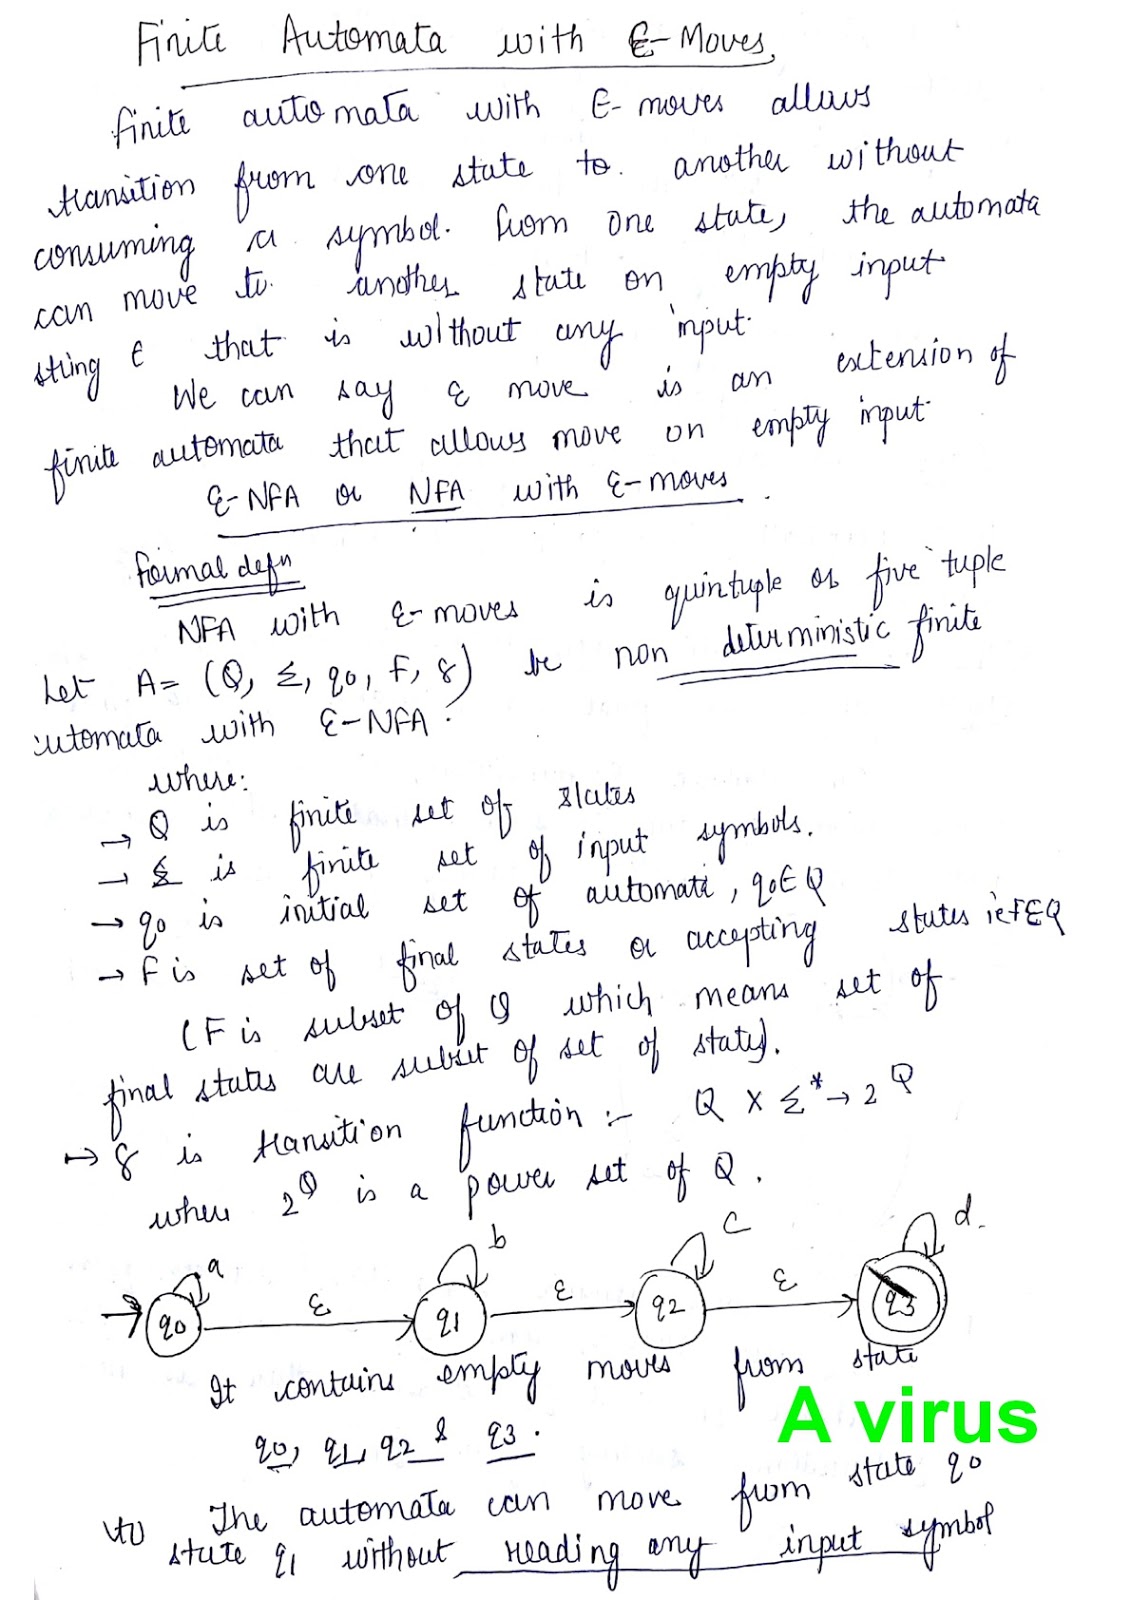 Finite Automata with ε-Moves.
finite automata with ε-moves allows
transition from one state to. another without
consuming a symbol. from one state, the automata
can move to. another state on empty input
string ε that is without any input.
We can say ε move is an extension of
finite automata that allows move on empty input.
ε-NFA or NFA with ε-moves.
formal defn
NFA with ε-moves is quintuple or five tuple
Let A= (Q, Σ, q0, F, δ) be non deterministic finite
automata with ε-NFA.
where:
→ Q is finite set of states
→ Σ is finite set of input symbols.
→ q0 is initial set of automata, q0∈Q
→ F is set of final states or accepting states ie F∈Q
(F is subset of Q which means set of
final states are subset of set of states).
→ δ is transition function :- Q X Σ* → 2^Q
where 2^Q is a power set of Q.
a b c d.
q0 ε q1 ε q2 ε q3
It contains empty moves from state
q0, q1, q2 & q3.
A virus
The automata can move from state q0
to state q1 without reading any input symbol